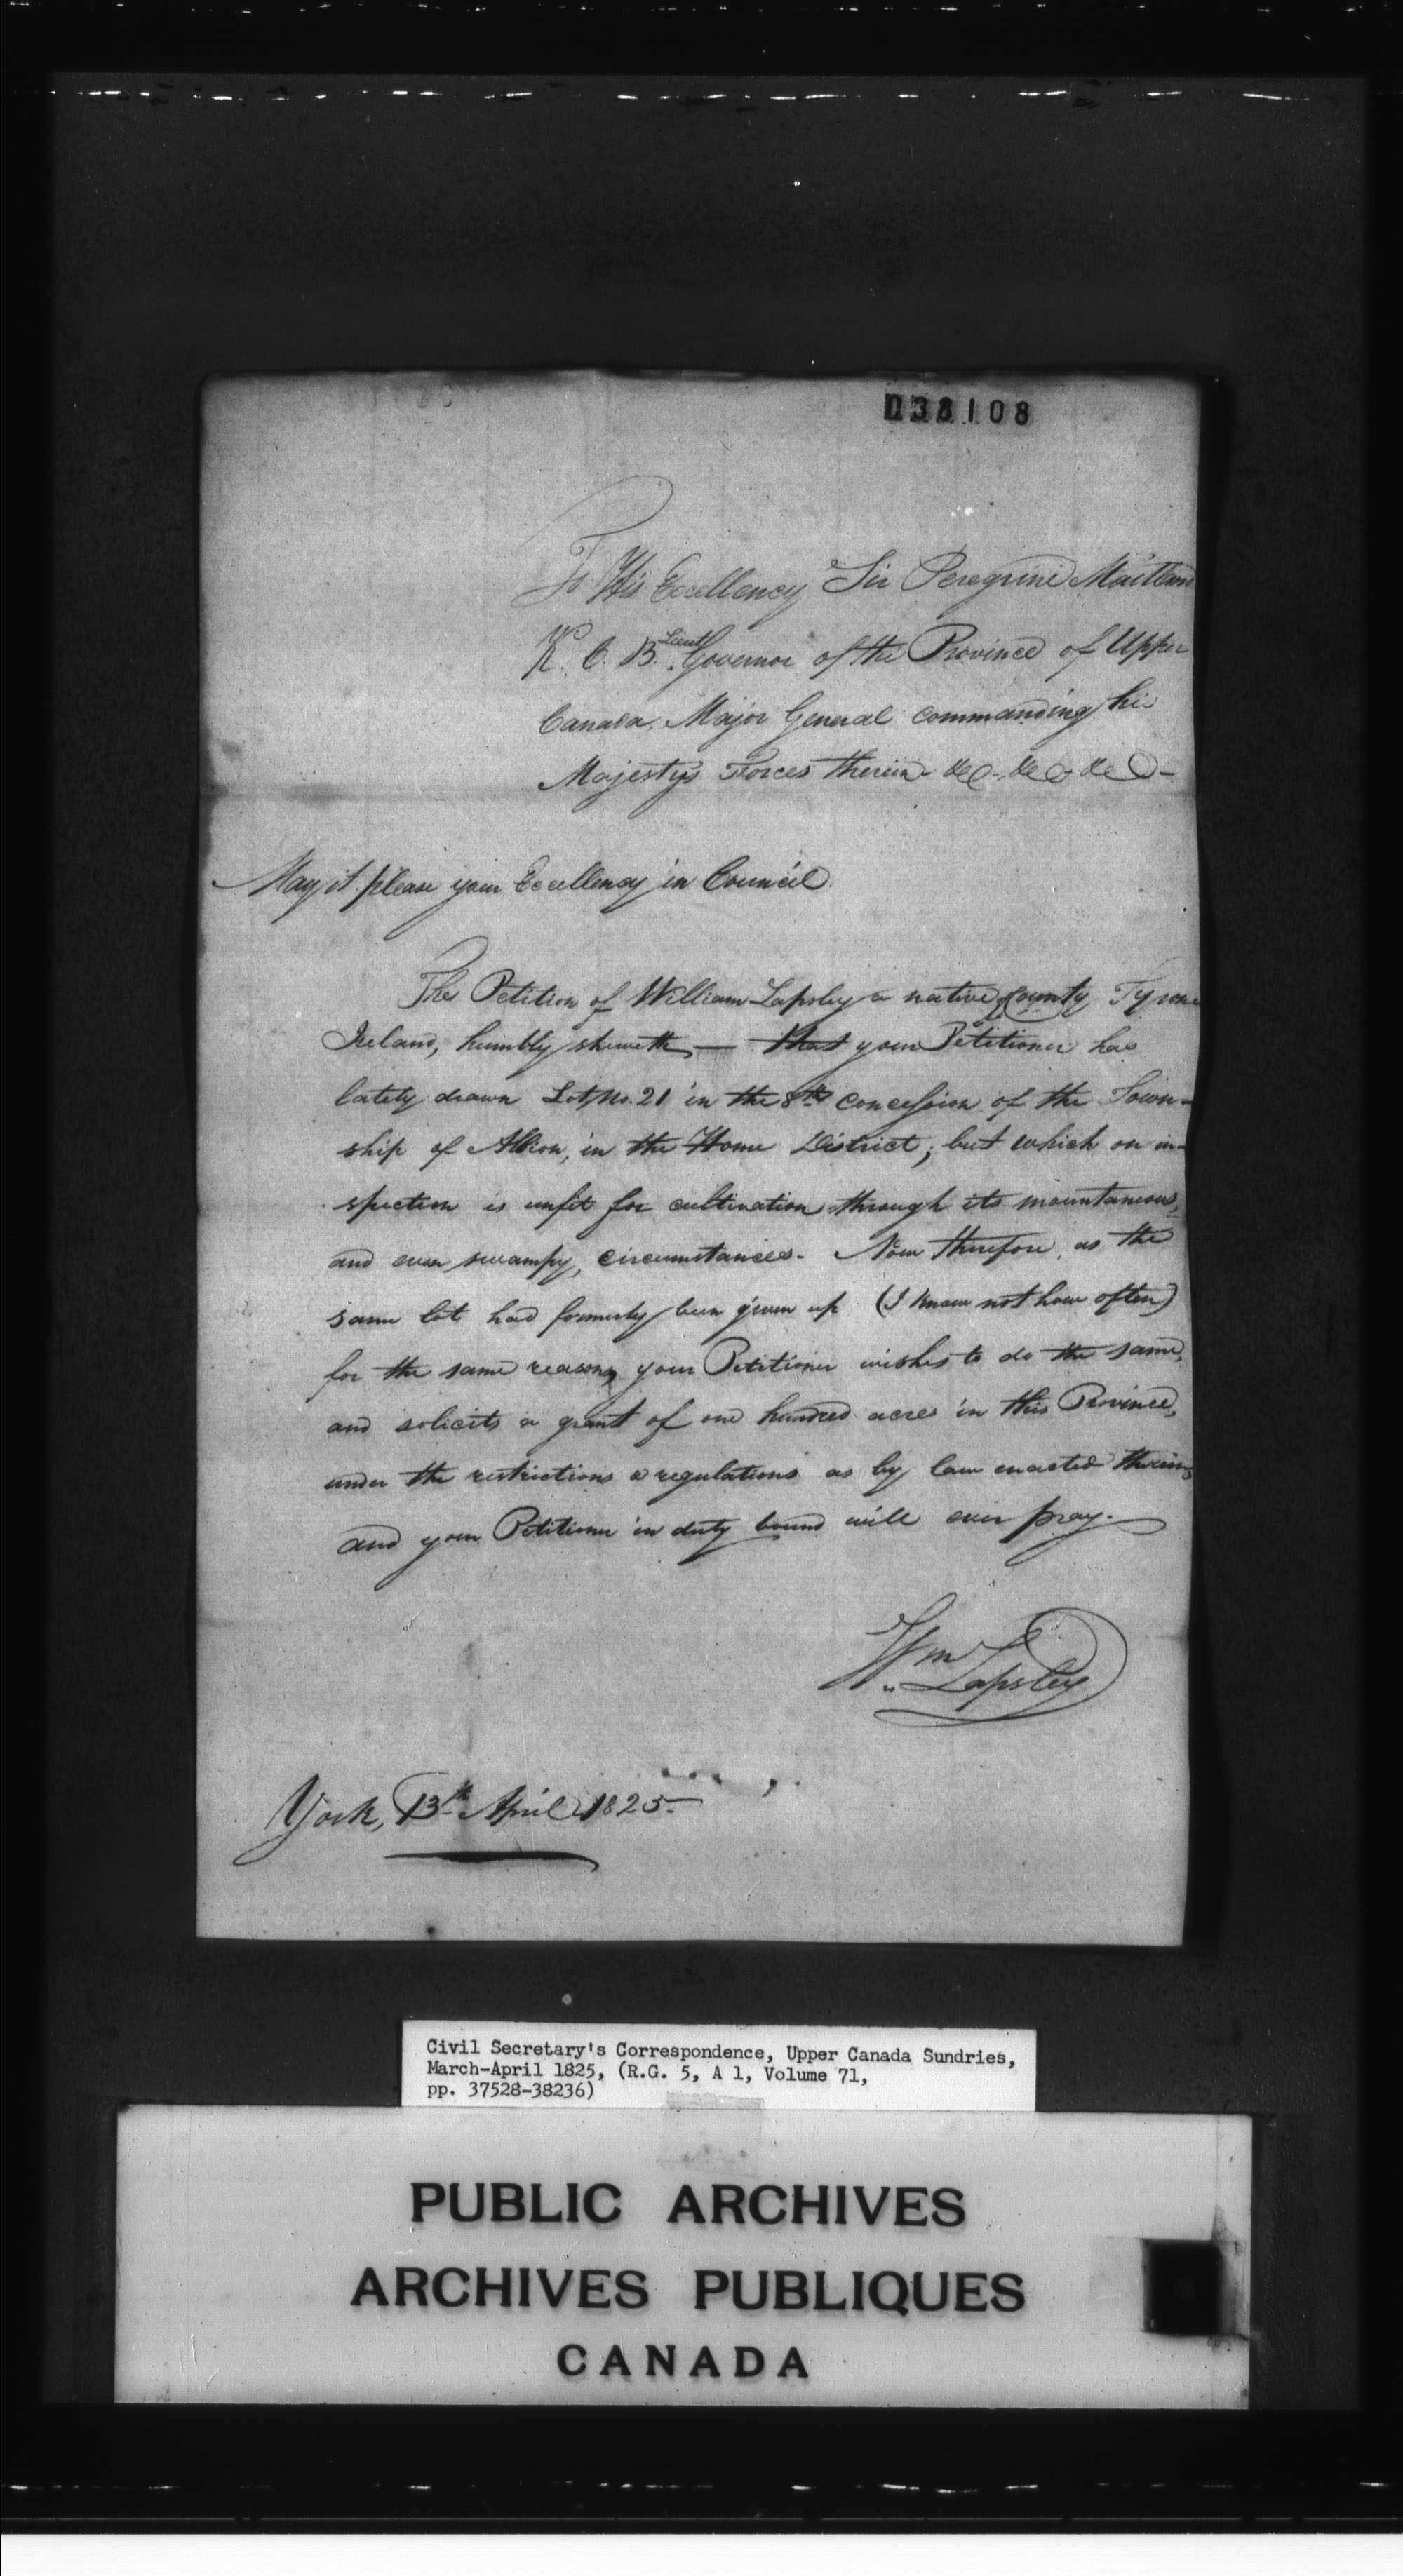 038108
To His Excellency Sir Peregrine Maitland
K. C. B. Lieut Governor of the Province of Upper
Canada, Major General commanding his
Majesty's Forces therein &c-. &c &c-
May it please your Excellency in Council.
The Petition of William Lapsley a native of County Tyrone
Ireland, humbly sheweth,— that your Petitioner has
lately drawn Lot, No. 21 in the 8th concession of the Town-
ship of Albion, in the Home District; but which on in-
spection is unfit for cultivation through its mountaneous,
and even swampy, circumstances. Now therefore, as the
same lot had formerly been given up (I know not how often)
for the same reasons, your Petitioner wishes to do the same,
and solicits a grant of one hundred acres in this Province,
under the restrictions & regulations as by law enacted therein,
and your Petitioner in duty bound will ever pray.
Wm Lapsley
York, 13th April 1825.
Civil Secretary's Correspondence, Upper Canada Sundries,
March-April 1825, (R.G. 5, A 1, Volume 71,
pp. 37528-38236)
PUBLIC ARCHIVES
ARCHIVES PUBLIQUES
CANADA